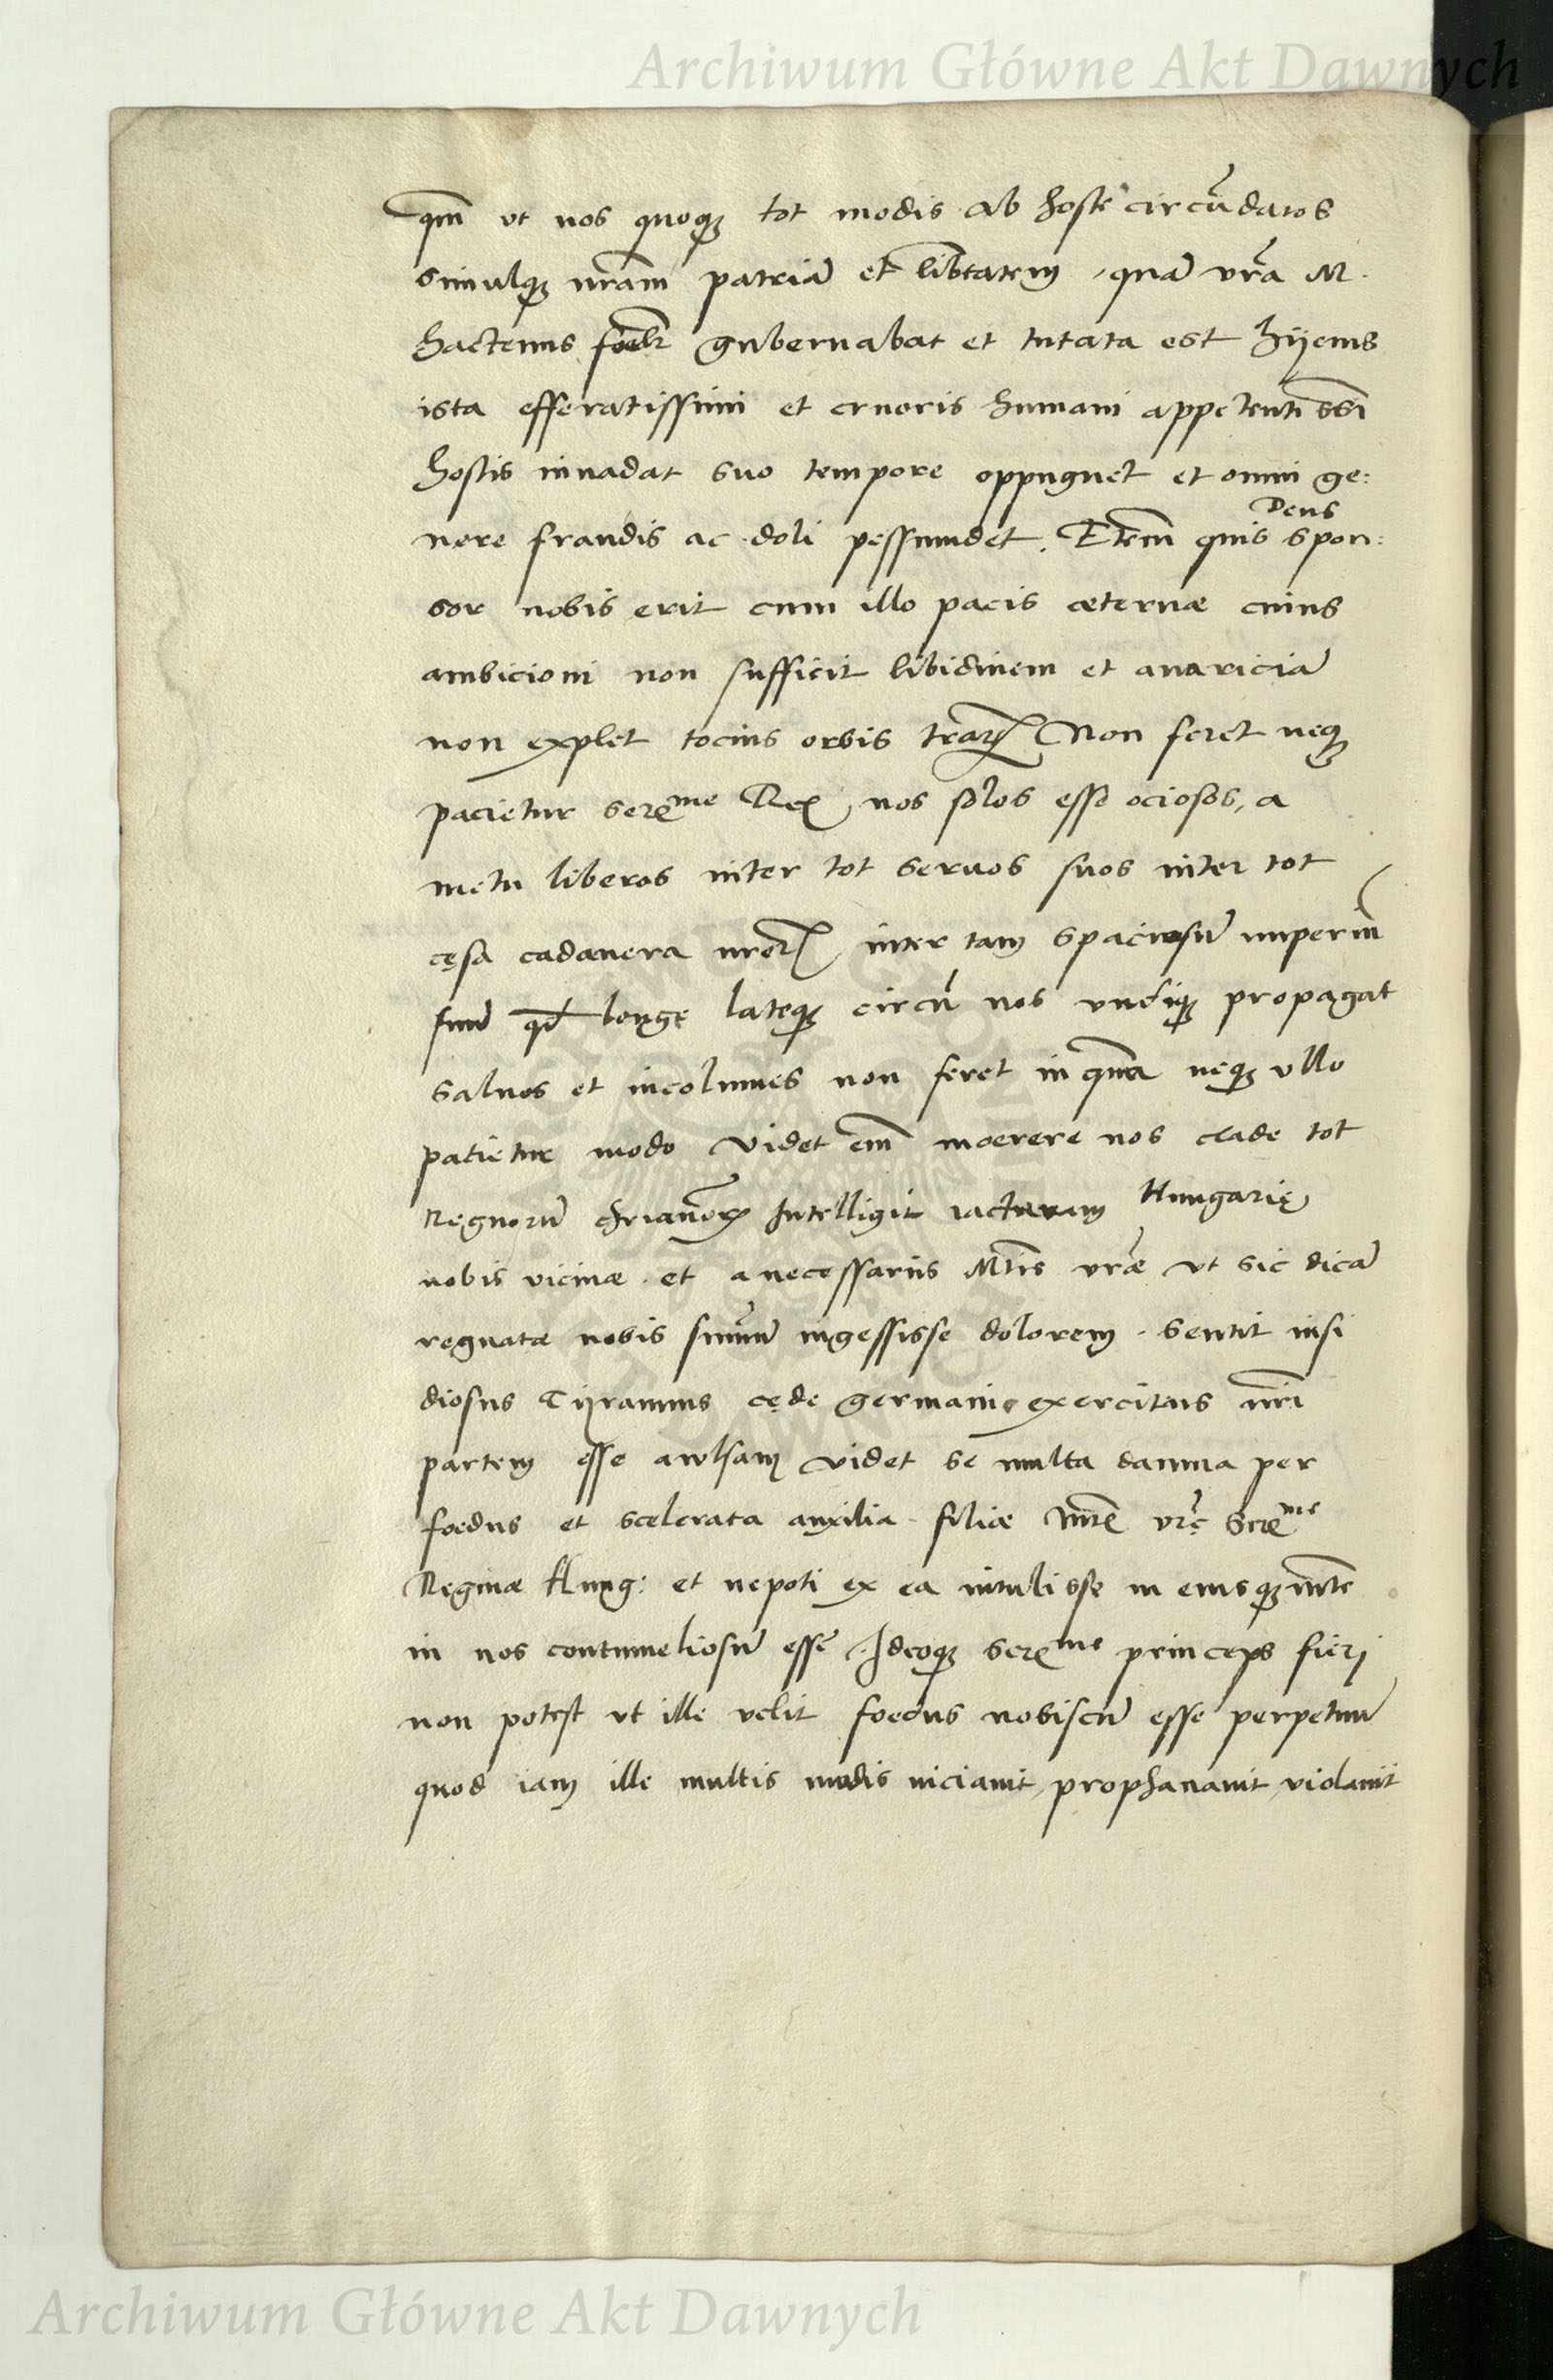 Archiwum Główne Akt Dawnych
qm̃ ut nos quoqȝ tot modis ab hoste circũdatos
simulqȝ nr̃am patriã et lib̃tatem, quã vr̃a M.
hactenus foelr̃ gubernabat et tutata est hÿems
ista efferatissimi et cruoris humani appetentissĩ
hostis inuadat suo tempore oppugnet et omni ge:
Deus
nere fraudis ac doli pessundet. Etem̃ quis spon:
sor nobis erit cum illo pacis aeternae cuius
ambicioni non sufficit libidinem et auariciã
non explet tocius orbis trarꝝ Non feret neqȝ
pacietur serẽme Rex, nos solos esse ociosos, a
metu liberos inter tot seruos suos inter tot
cęsa cadauera nr̃orꝝ, inter tam spaciosũ imperiũ
suũ qd̃ longę lateqȝ circũ nos undiqȝ propagat
saluos et incolumes non feret inquã neqȝ ullo
patietur modo Videt em̃ moerere nos clade tot
Regnorũ chrianorꝝ Intelligit iacturam Hungarię
nobis vicinae et a necessariis Mtis vrae ut sic dicã
regnatae nobis sum̃um ingessisse dolorem. Sentit insi
diosus Tÿrannus cęde germanici exercitus nr̃i
partem esse auulsam Videt se multa damna per
foedus et scelerata auxilia filiae Mtis vrę Serme
Reginae Hung: et nepoti ex ea intulisse in eiusqȝ mtẽ
in nos contumeliosũ esse Ideoqȝ serẽme princeps fieri
non potest ut ille velit foedus nobiscũ esse perpetuũ
quod iam ille multis modis viciauit, prophanauit, violauit
Archiwum Główne Akt Dawnych